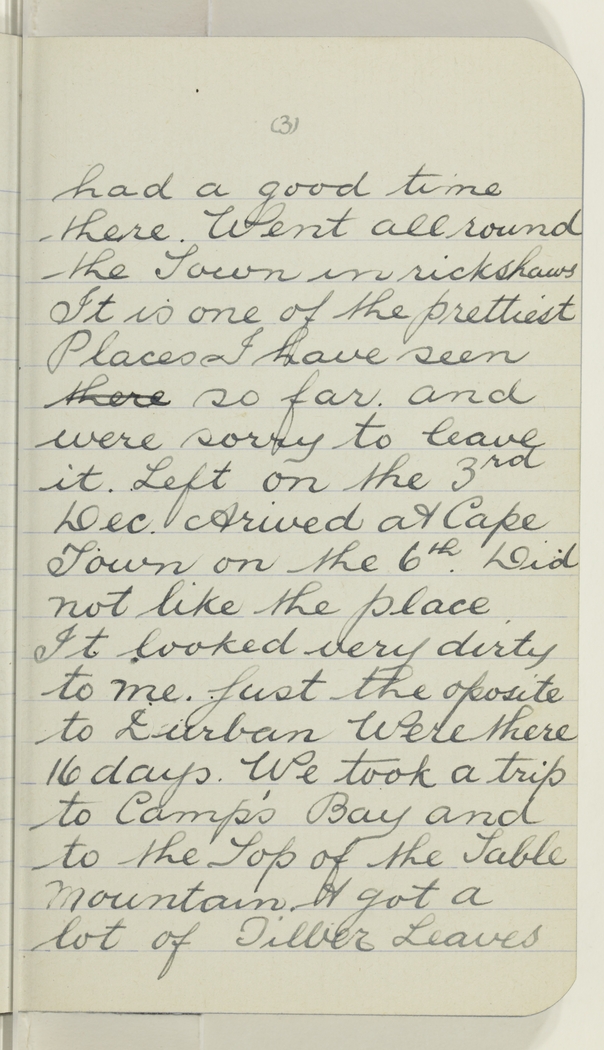 (3)
had a good time
there. Went all round
the Town in rickshaws
It is one of the prettiest
Places I have seen
there so far. and
were sorry to leave
it. Left on the 3rd
Dec. Arived at Cape
Town on the 6th. Did
not like the place
It looked very dirty
to me. Just the oposite
to Durban Were there
16 days. We took a trip
to Camp's Bay and
to the Top of the Table
Mountain. & got a
lot of Silver Leaves